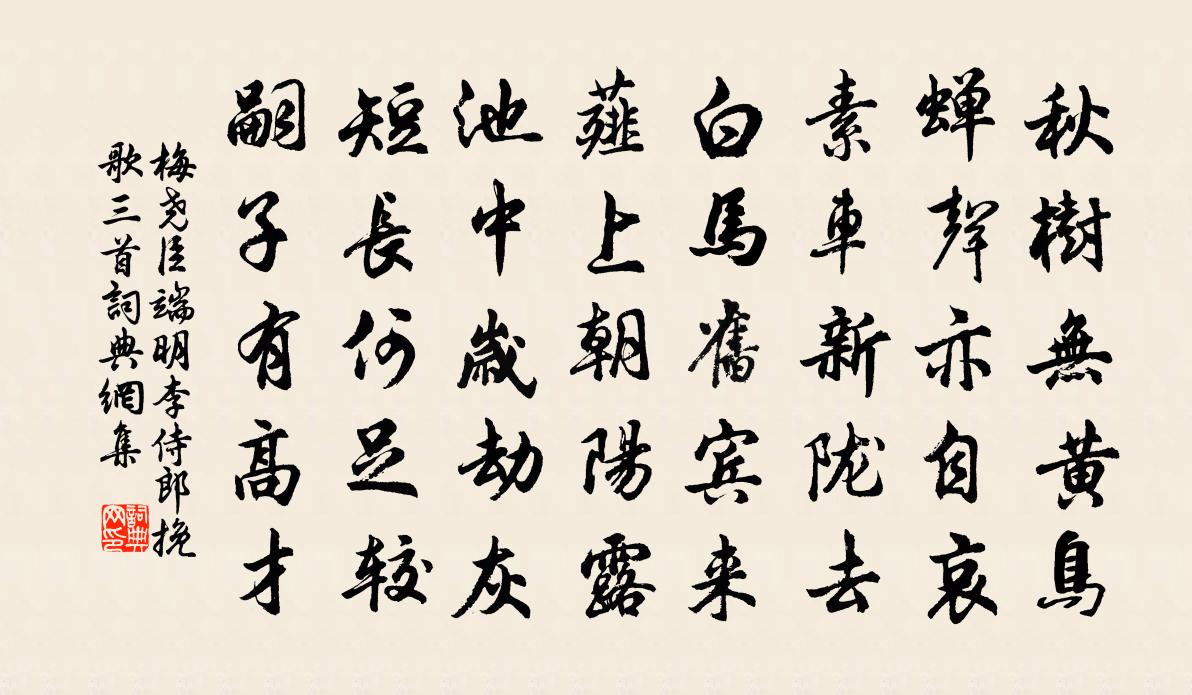 秋樹無黄鳥
蝉聲亦自哀
素車新陇去
白馬舊宾来
薤上朝陽露
池中歲劫灰
短長何足较
嗣子有高才
梅尧臣端明李侍郎挽
歌三首詞典網集
詞典
网印